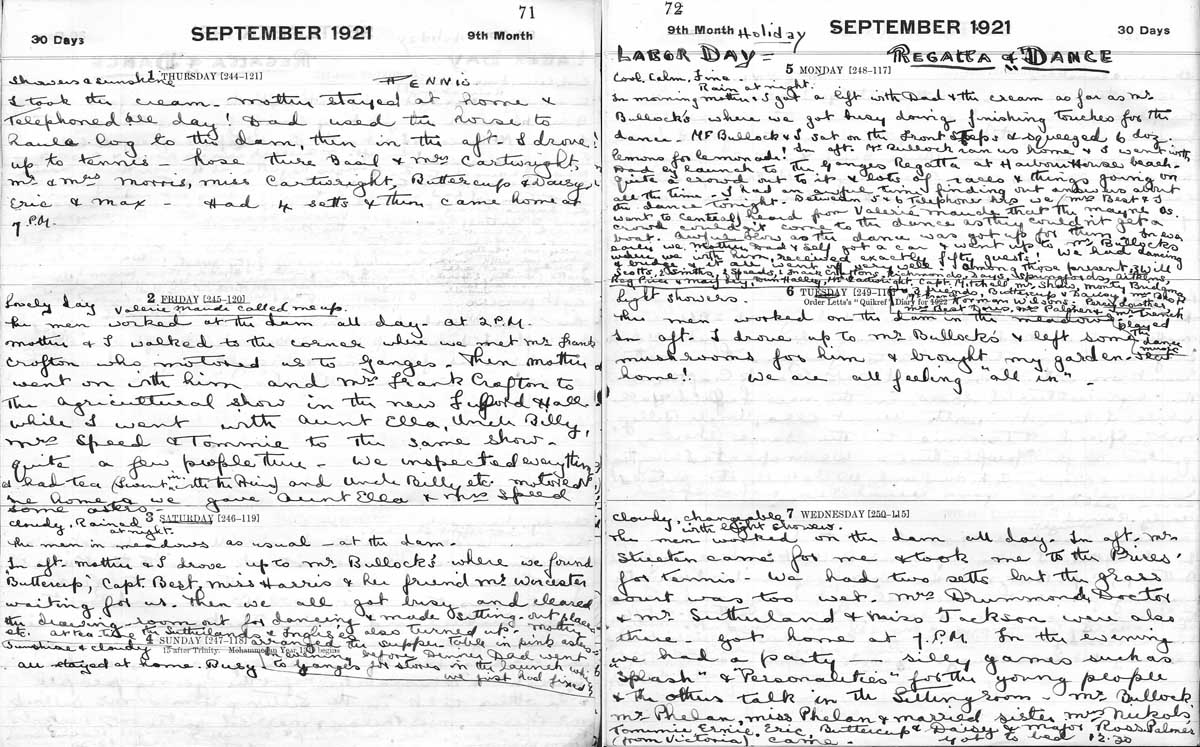 71
SEPTEMBER 1921
30 Days
9th Month
1 THURSDAY [244-121]
Showers & sunshine
TENNIS
I took the cream. Mother stayed at home &
telephoned all day! Dad used the horse to
haul a log to the dam, then in the aft. I drove
up to tennis - Those there Bail & Mrs Cartwright,
Mr & Mrs Morris, Miss Cartwright, Buttercup & Daisy,
Eric & Max - Had 4 setts & then came home at
7 P.M.
2 FRIDAY [245-120]
Lovely day
Valerie Maude called me up.
The men worked at the dam all day - at 2 P.M.
Mother & I walked to the corner where we met Mr Frank
Crofton who motored us to Ganges. Then Mother
went on with him and Mrs Frank Crofton to
the agricultural show in the new Fulford Hall
while I went with Aunt Ella, Uncle Billy,
Mrs Speed & Tommie to the same show.
quite a few people there - We inspected everything
& had tea (I went in with the) and Uncle Billy etc. motored
me home & we gave Aunt Ella & Mrs Speed
some asters.
3 SATURDAY [246-119]
Cloudy, Rained
at night.
The men in meadows as usual - at the dam.
In aft. Mother & I drove up to Mr Bullock's where we found
"Buttercup", Capt. Best, Miss Harris & her friend Mr Worcester
waiting for us. Then we all got busy and cleared
the drawing-room out for dancing & made sitting-out places
etc. at tea time the Sutherlands & Inglises also turned up. Mother
arranged the supper table in pink asters
4 SUNDAY [247-118]
15 after Trinity. Mohammedan Year begins
Sunshine & cloudy
all stayed at home. Busy
evening before Dad went
to Ganges for stores in the launch which
we first had fixed
72
SEPTEMBER 1921
9th Month
30 Days
Holiday
LABOR DAY =
REGATTA & DANCE
5 MONDAY [248-117]
Cool, Calm, Fine.
Rain at night.
In morning Mother & I got a lift with Dad & the cream as far as Mr
Bullock's where we got busy doing finishing touches for the
dance. Mr Bullock & I sat on the front steps & squeezed 6 doz.
lemons for lemonade! In aft. Mr Bullock ran us home & I went with
Dad by launch to the Ganges Regatta at Harbour House beach -
quite a crowd out to it & lots of races & things going on
all the time. I had an awful time finding out and about
the dance tonight. Between 5 & 6 telephone hrs we (Mrs Best & I
went to Central) heard from Valerie Maude that the Mayne Is.
crowd couldn't come to the dance as they couldn't get a
boat. Awful blow as the dance was got up for them! In eve
early we, Mother, Dad & self got a car & went up to Mr Bullock's
where we with him, received exactly fifty guests! We had dancing
& bridge & it all went very well. Among those present, 3 Wil
Scotts, 2 Smiths, 2 Speeds, Frank Croftons,
Capt. Mitchell, Mr Shaw, Monty Bridgman
6 TUESDAY [249-116]
Order Letts's "Quikref" Diary for 1922
light showers.
Norman Wilsons.
Mr Palmer & Mr French
played
dance
music
The men worked on the dam in the meadow
In aft. I drove up to Mr Bullock's & left some
mushrooms for him & brought my garden-seat
home! We are all feeling "all in" -
7 WEDNESDAY [250-115]
Cloudy, changeable
with light showers.
The men worked on the dam all day. In aft. Mrs
Streeter came for me & took me to the Prices'
for tennis - We had two setts but the grass
court was too wet. Mrs Drummond, Doctor
& Mrs Sutherland & Miss Jackson were also
there - got home at 7 P.M. In the evening
we had a party - silly games such as
"Splash" & "Personalities" for the young people
& the others talk in the Sittingroom - Mr Bullock
Mr Phelan, Miss Phelan & married sister Mrs Nichols
Tommie, Ernie, Eric, Buttercup & Daisy & Major Ross Palmer
(from Victoria) came. got to bed 12:30